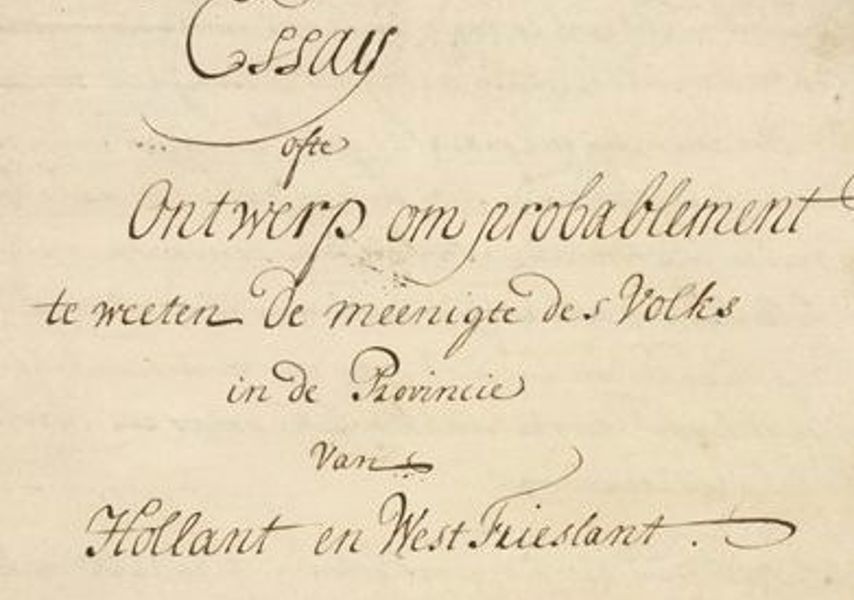 Essay
ofte
Ontwerp om probablement
te weeten De meenigte des Volks
in de Provincie
Van
Hollant en West Frieslant.